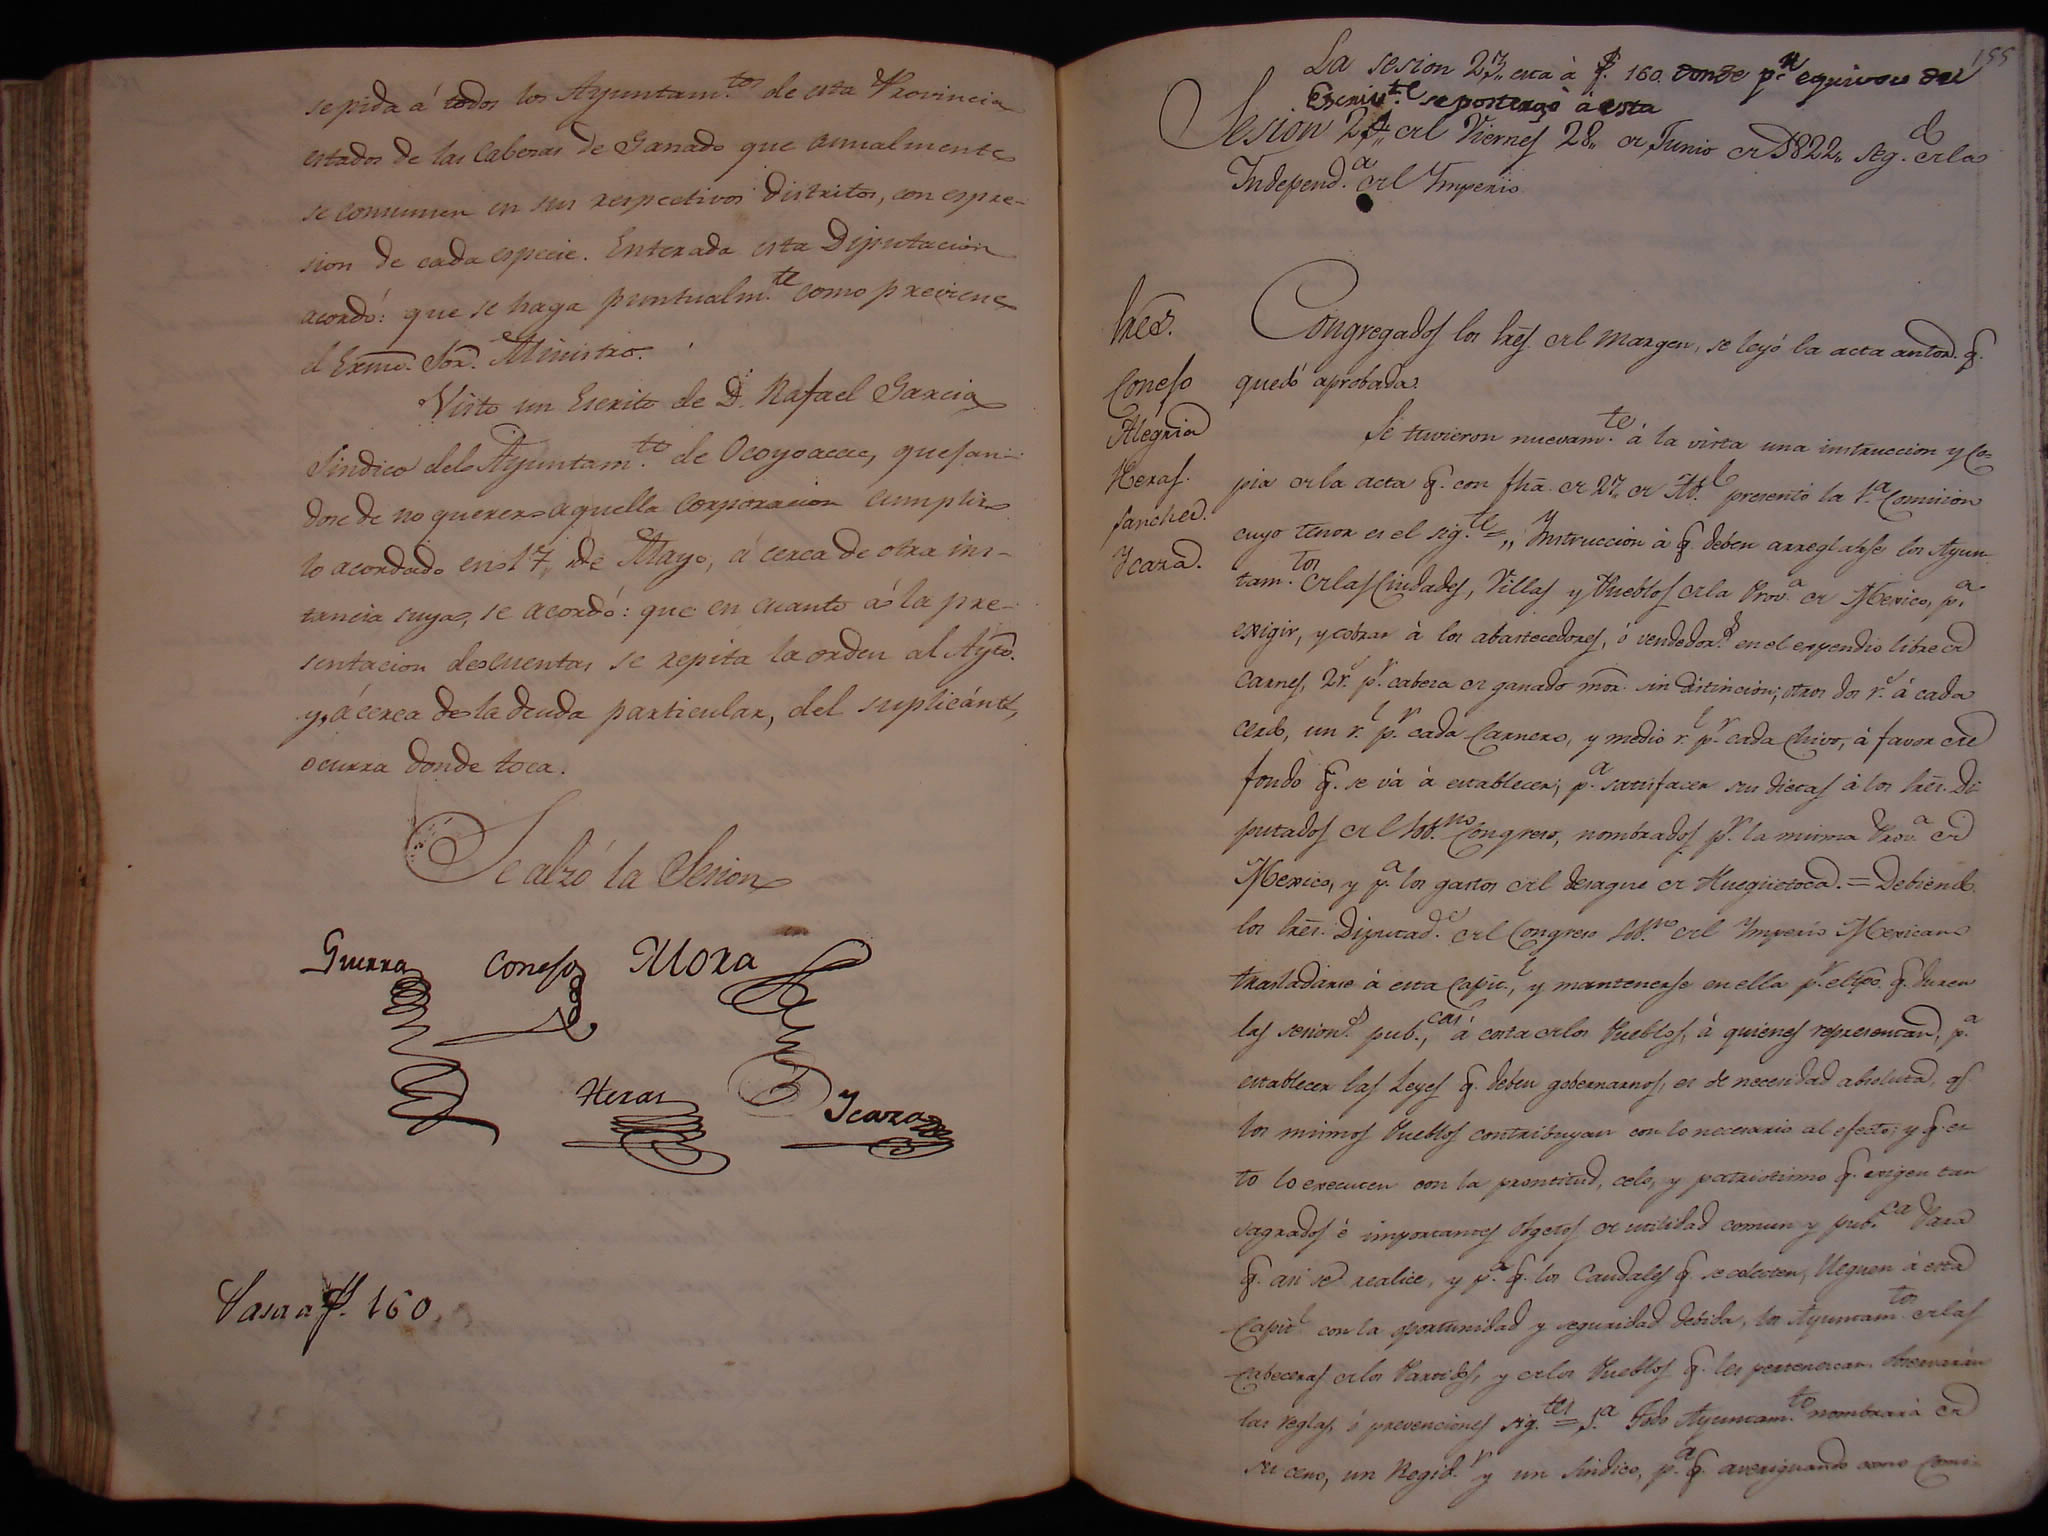 se pida á todos los Ayuntam.tos de esta Provincia
estados de las Cabezas de Ganado que anualmente
se consumen en sus respectivos distritos, con espre-
sion de cada especie. Enterada esta Diputacion
acordó: que se haga puntualm.te como previene
el Exmo. Sor. Ministro.
Visto un Escrito de D. Rafael Garcia
Sindico del Ayuntam.to de Ocoyoacac, quejan-
dose de no querer aquella Corporacion cumplir
lo acordado en 17,, de Mayo, á cerca de otra ins-
tancia suya, se acordó: que en cuanto á la pre-
sentacion de cuentas se repita la orden al Ayto.
y, á cerca de la deuda particular, del suplicánte,
ocurra donde toca.
Se alzó la Sesion
Guerra Conejo Mora
Heras Icaza
Pasa a f. 160.
155
La sesion 23,, esta à f. 160. donde p.r equivoco del
Escriv.te se postergó à esta
Sesion 24,, del Viernes 28,, de Junio de 1822,, seg. de la
Independ.a del Ymperio.
Sres.
Conejo
Alegria
Heras.
Sanchez.
Ycaza.
Congregados los Sres. del margen, se leyó la acta anteor. q.
quedó aprobada.
Se tuvieron nuevam.te á la vista una instruccion y co-
pia de la acta q. con fha. de 27,, de Ab.l presentó la 1.a Comision
cuyo tenor es el sig.te =,, Ynstruccion à q. deben arreglarse los Ayun-
tam.tos de las Ciudades, Villas y Pueblos de la Prov.a de Mexico, p.a
exigir, y cobrar à los abastecedores, ó vendedor.s en el expendio libre de
carnes, 2 r.s p.r cabeza de ganado mor. sin distincion; otros dos r.s á cada
cerdo, un r.l p.r cada Carnero, y medio r.l p.r cada Chivo, á favor del
fondo q. se và à establecer; p.a satisfacer sus dietas à los Sres. Di-
putados del Sob.no Congreso, nombrados p.r la misma Prov.a de
Mexico, y p.a los gastos del desague de Huegüetoca. = Debiendo
los Sres. Diputad.s del Congreso Sob.no del Ymperio Mexicano
trasladarse á esta Capit.l, y mantenerse en ella p.r el tpo. q. duren
las sesion.s pub.cas, á costa de los Pueblos, à quienes representan, p.a
establecer las Leyes q. deben gobernarnos, es de necesidad absoluta, q.
los mismos Pueblos contribuyan con lo necesario al efecto; y q. es-
to lo executen con la prontitud, celo, y patriotismo q. exigen tan
sagrados é importantes objetos de utilidad comun y pub.ca Para
q. asi se realice, y p.a q. los Caudales q. se colecten, lleguen á esta
Capit.l con la oportunidad y seguridad debida, los Ayuntam.tos de las
cabeceras de los Partidos, y de los Pueblos q. les pertenescan, observarán
las reglas, ó prevenciones sig.tes = 1.a Todo Ayuntam.to nombrará de
su ceno, un Regid.r y un Sindico, p.a q. averiguando como Comi-